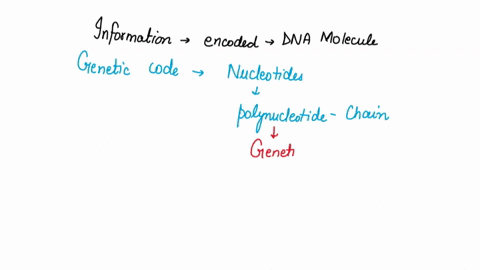 Information → encoded → DNA Molecule
Genetic code → Nucleotides
↓
polynucleotide - Chain
↓
Genet